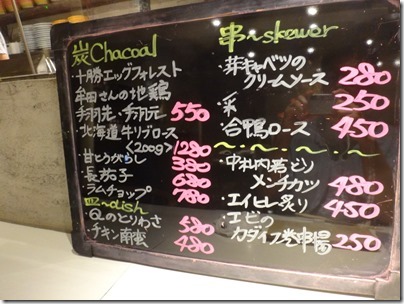 炭 Chacoal
十勝エッグフォレスト
牟田さんの地鶏
手羽先・手羽元 550
北海道牛リブロース
<200g> 1280
甘とうがらし 380
長茄子 680
ラムチョップ 780
~dish
Qのとりわさ 580
チキン南蛮 480
串~skewer
・芽キャベツの
クリームソース 280
・采 250
・合鴨ロース 450
・中札内若どり
メンチカツ 480
・エイヒレ炙り 450
・エビの
カダイフ巻串揚 250